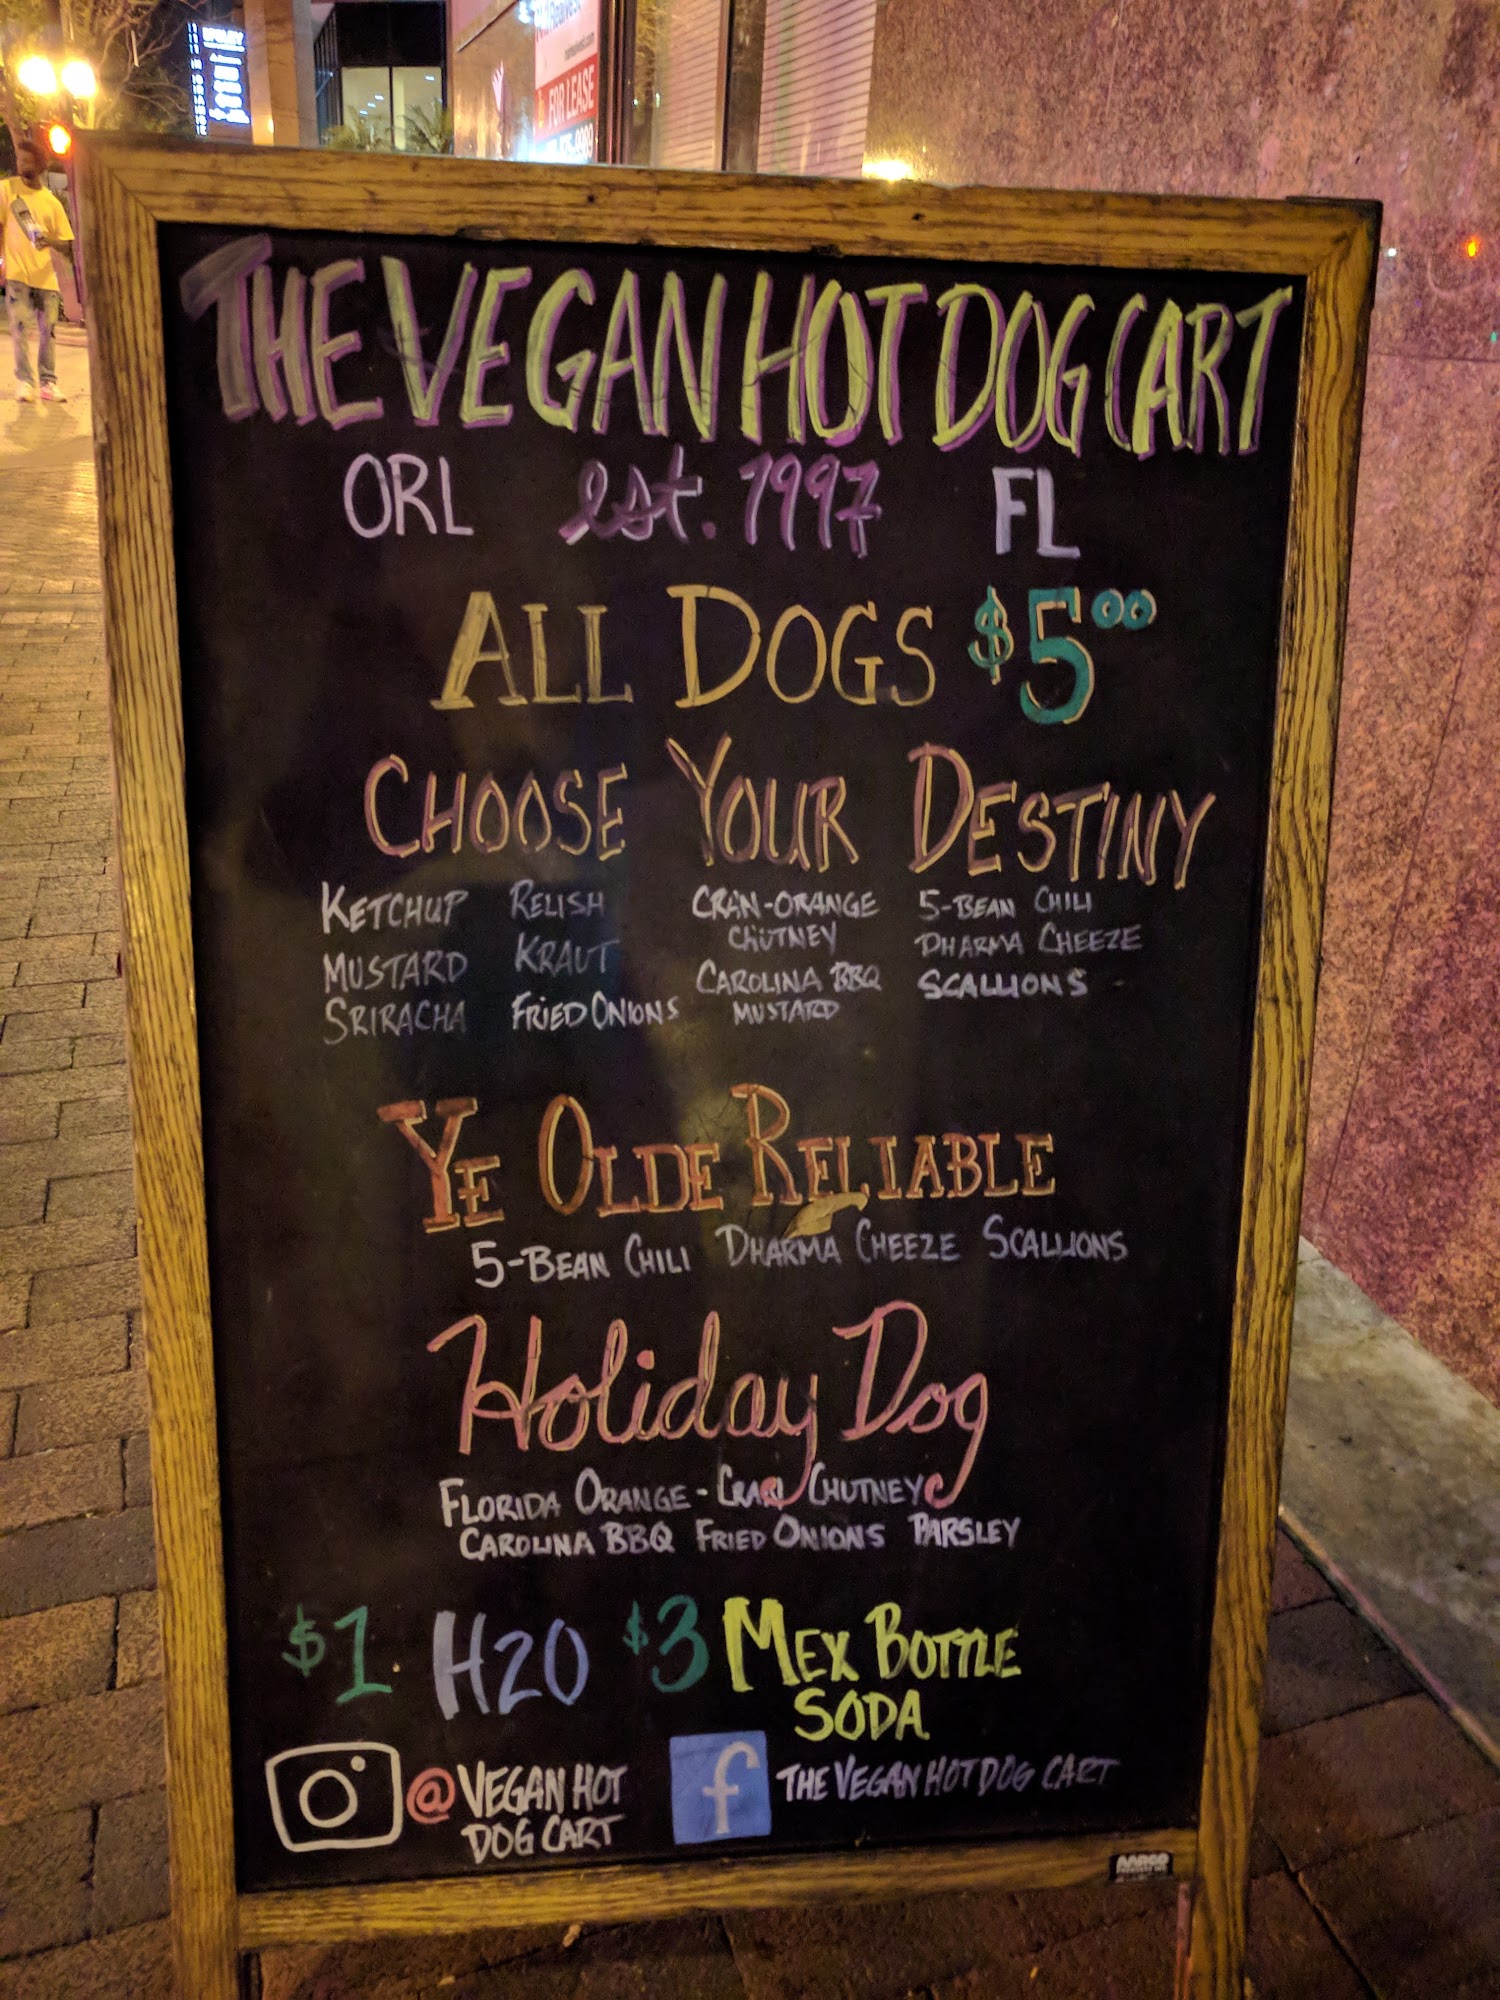 FOR LEASE
THE VEGAN HOT DOG CART
ORL est. 1997 FL
ALL DOGS $5.00
CHOOSE YOUR DESTINY
KETCHUP
MUSTARD
SRIRACHA
RELISH
KRAUT
FRIED ONIONS
CRAN-ORANGE
CHUTNEY
CAROLINA BBQ
MUSTARD
5-BEAN CHILI
DHARMA CHEEZE
SCALLIONS
YE OLDE RELIABLE
5-BEAN CHILI DHARMA CHEEZE SCALLIONS
Holiday Dog
FLORIDA ORANGE-CRAN CHUTNEY
CAROLINA BBQ FRIED ONIONS PARSLEY
$1 H20 $3 MEX BOTTLE
SODA
@VEGAN HOT
DOG CART
f THE VEGAN HOT DOG CART